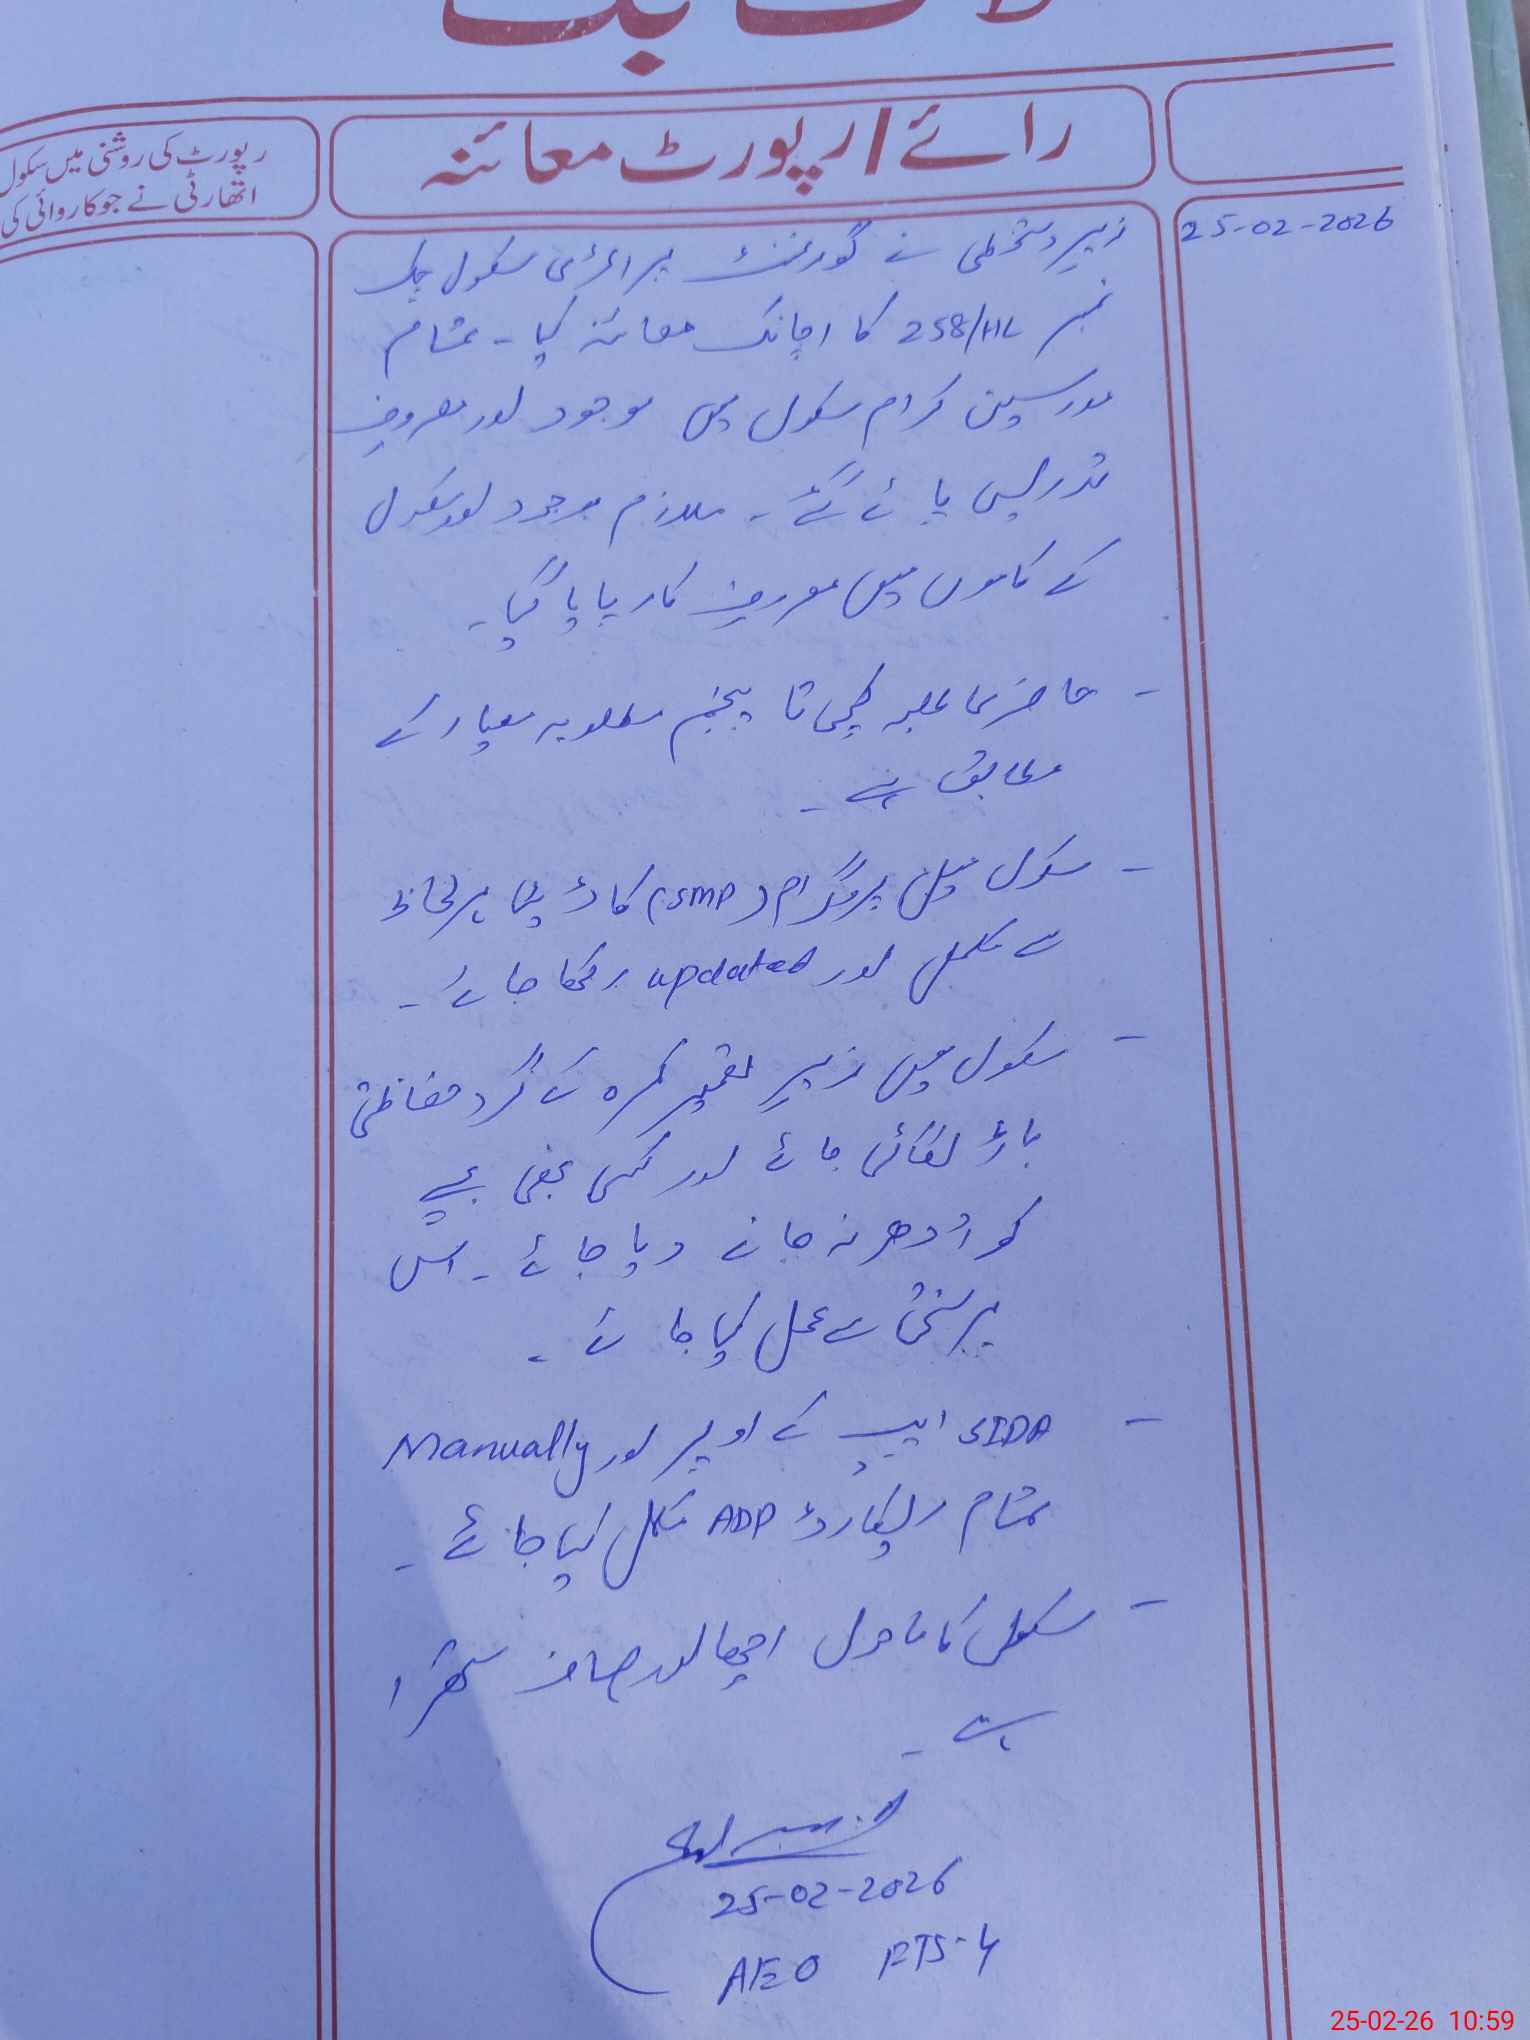 لاگ بک
رائے/رپورٹ معائنہ
رپورٹ کی روشنی میں سکول
اتھارٹی نے جو کاروائی کی
25-02-2026
زیر دستخطی نے گورنمنٹ پرائمری سکول چک
نمبر 258/HL کا اچانک معائنہ کیا۔ تمام
مدرسین کرام سکول میں موجود اور مصروف
تدریس پائے گئے۔ ملازم موجود اور سکول
کے کاموں میں مصروف کار پایا گیا۔
- حاضری طلبہ کچی تا پنجم مطلوبہ معیار کے
مطابق ہے۔
- سکول میل پروگرام (SMP) کا ڈیٹا ہر لحاظ
سے مکمل اور updated رکھا جائے۔
- سکول میں زیر تعمیر کمرہ کے گرد حفاظتی
باڑ لگائی جائے اور کسی بھی بچے
کو ادھر نہ جانے دیا جائے۔ اس
پر سختی سے عمل کیا جائے۔
- SIDA ایپ کے اوپر اور Manually
تمام ریکارڈ ADP مکمل کیا جائے۔
- سکول کا ماحول اچھا اور صاف ستھرا
ہے۔
25-02-2026
AEO RTS-4
25-02-26 10:59